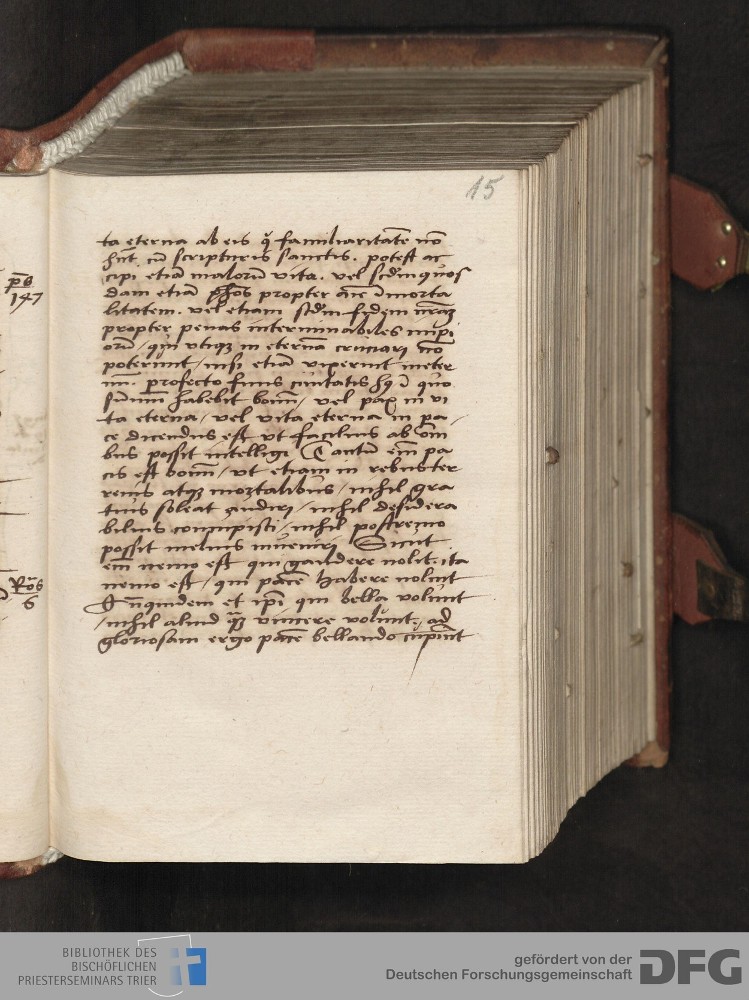 15
ta eterna ab eis q̄ familiaritatē nō
hn̄t cū scripturis sanctis. potest ac
cipi etiā malorū vita. vel scd̄m quos
dam etiā ph̄os propter aīe īmorta
litatem. vel etiam scd̄m fidem nr̄aꝫ
propter penas interminabiles impi
orū / qui vtiqꝫ in eternū cruciari nō
poterunt / nisi etiā vixerint in eter
nū. profecto finis ciuitatis hꝰ ī quo
sūmū habebit bonū / vel pax in vi
ta eterna / vel vita eterna in pa
ce dicendus est vt facilius ab om̄i
bus possit intelligi Tantū em̄ pa
cis est bonū / vt etiam in rebus ter
renis atqꝫ mortalibus / nihil gra
tius soleat audiri / nihil desidera
bilius concupisci / nihil postremo
possit melius inueniri Sicut
em̄ nemo est qui gaudere nolit. ita
nemo est / qui pacē habere nolint
Qn̄quidem et ip̄i qui bella volunt
/ nihil aliud qꝫ vincere volunt. ad
gloriosam ergo pacē bellando cupiūt
pō
147
Rōs
6
BIBLIOTHEK DES
BISCHÖFLICHEN
PRIESTERSEMINARS TRIER
gefördert von der
Deutschen Forschungsgemeinschaft
DFG